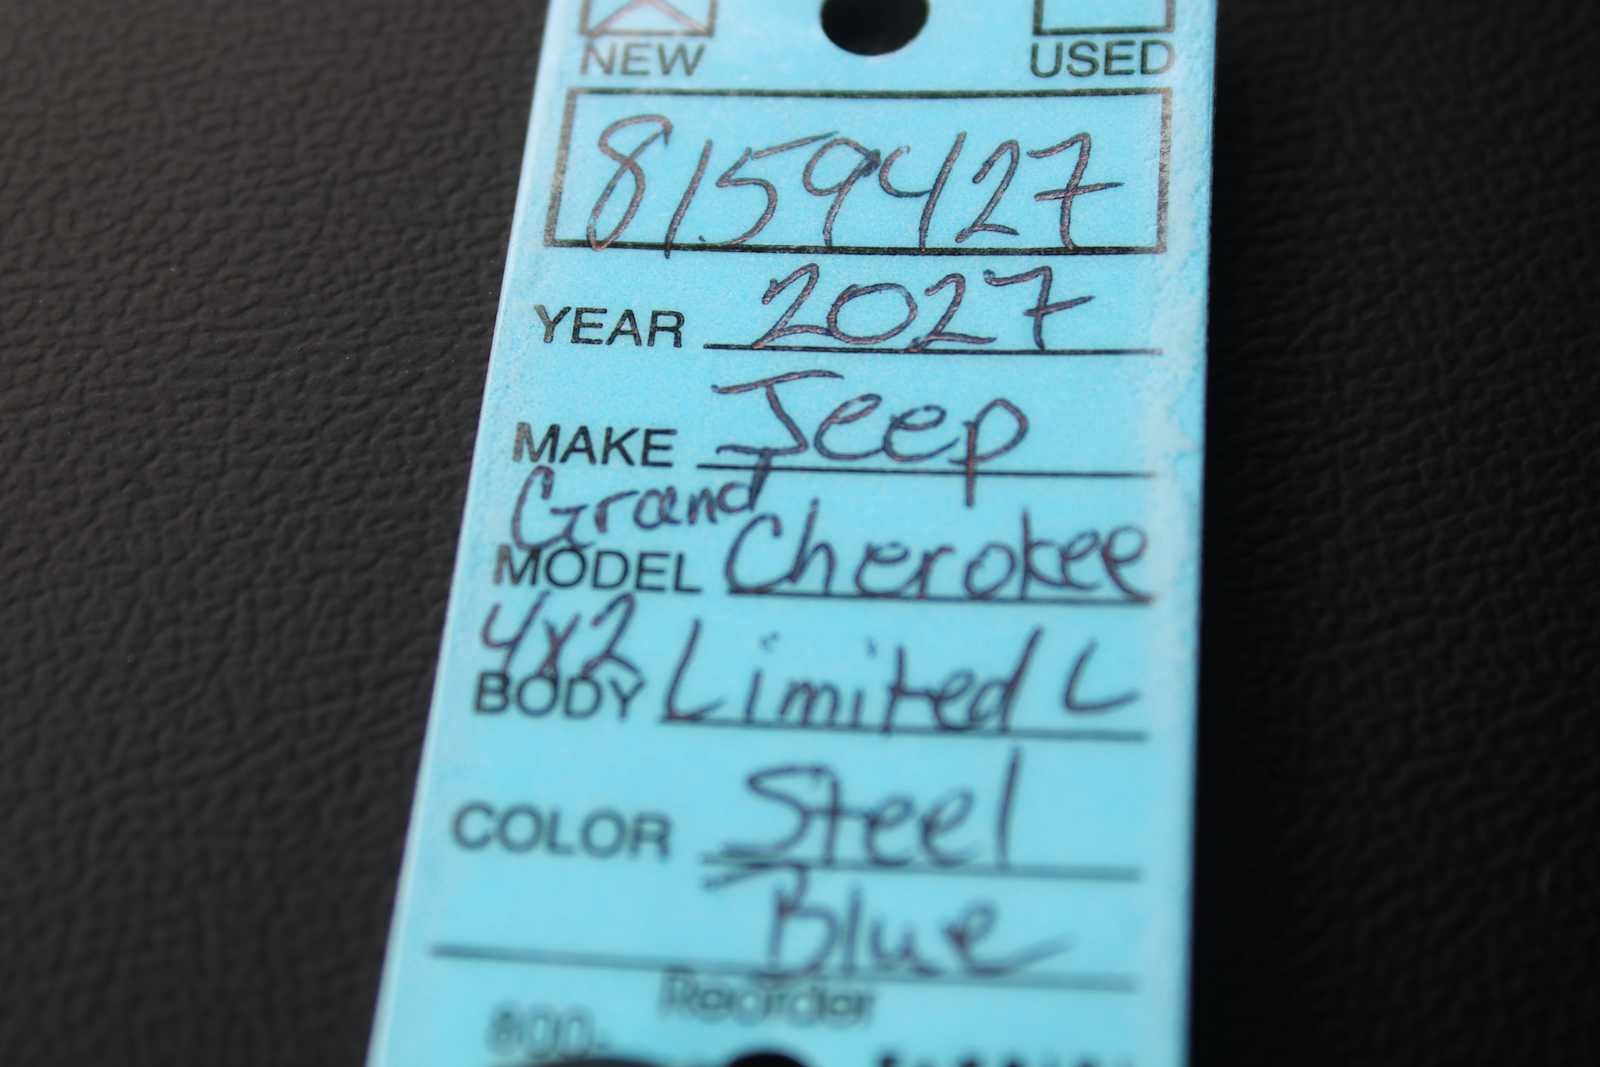 NEW USED
8159427
YEAR 2027
MAKE Jeep
Grand
MODEL Cherokee
4x2
BODY Limited L
COLOR Steel
Blue
Reorder
800-